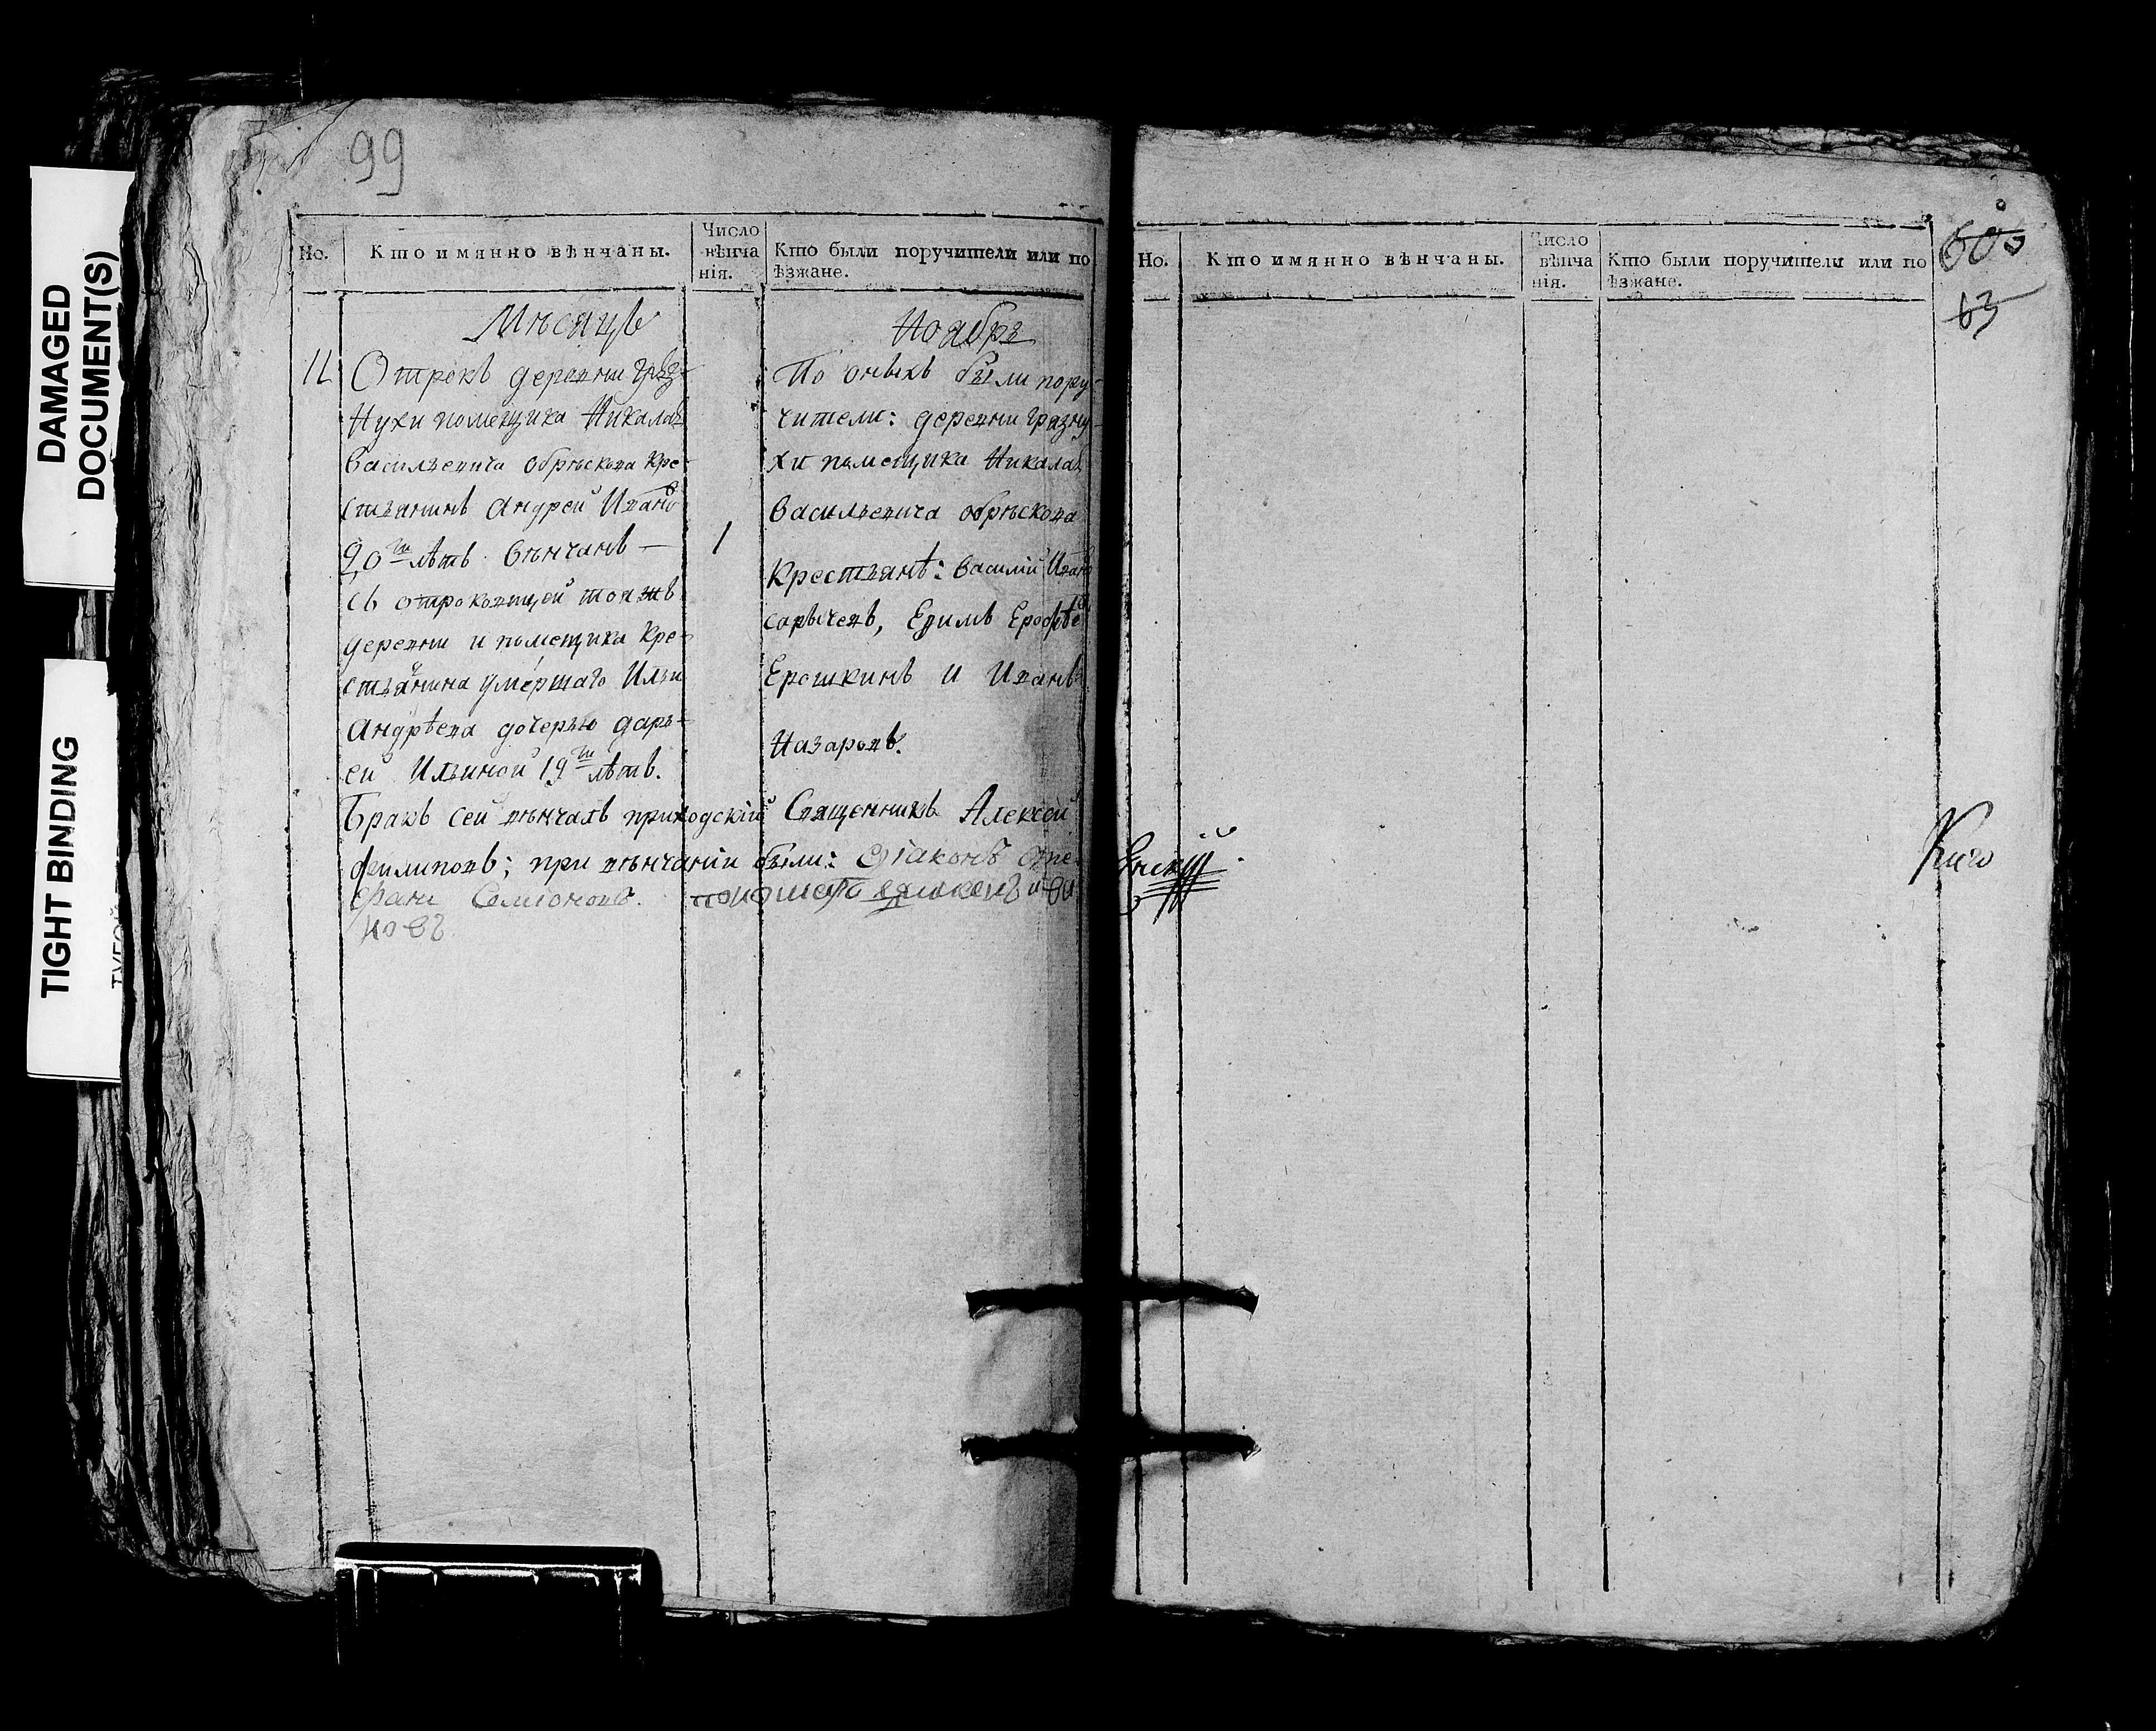 DAMAGED
DOCUMENT(S)
TIGHT BINDING
99
Но.
Кто имянно вѣнчаны.
Число
вѣнча
нія.
Кто были поручители или по
ѣзжане.
Мѣсяцъ
Ноябрь
11
Отрокъ деревни Гряз-
нухи помещика Никалая
Васильевича Обрѣскова кре-
стьянинъ Андрей Ивано
20 ти лѣтъ вѣнчанъ —
съ отроковицей тояжъ
деревни и помещика кре-
стьянина умершаго Ильи
Андрѣева дочерью Дарь-
ей Ильиной 19 ти лѣтъ.
1
По оныхъ были пору-
чители: деревни Грязну-
хи помещика Никалая
Васильевича Обрѣскова
крестьянѣ: Василій Ивано
Ефимъ Ерофѣе
Ерошкинъ и Иванъ
Назаровъ.
Бракъ сей вѣнчалъ приходскій Священникъ Алексѣй
Филиповъ; при вѣнчаніи были: Діаконъ Сте
фанъ Семіоновъ.
Но.
Кто имянно вѣнчаны.
Число
вѣнча
нія.
Кто были поручители или по
ѣзжане.
63